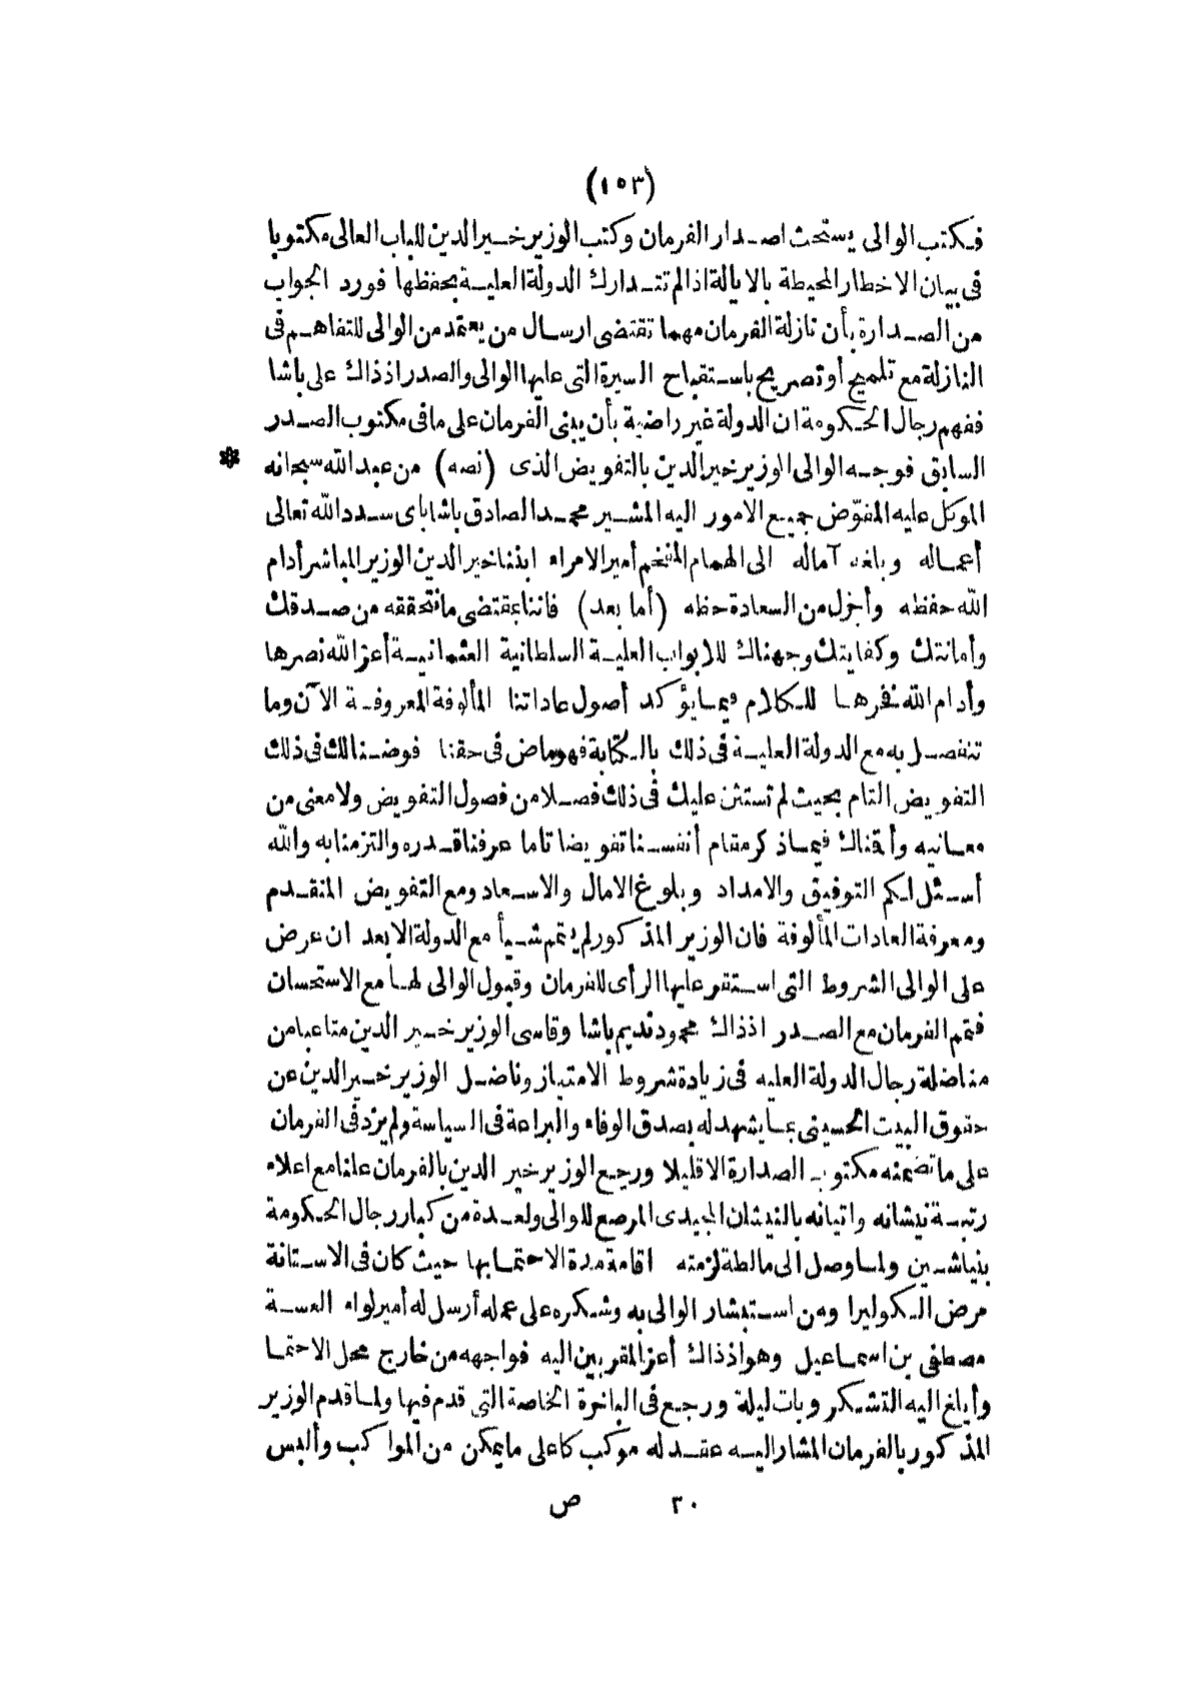 (١٥٣)
فكتب الوالى يستحث اصدار الفرمان وكتب الوزير خير الدين للباب العالى مكتوبا
فى بيان الاخطار المحيطة بالايالة اذا لم تتدارك الدولة العلية بحفظها فورد الجواب
من الصدارة بأن نازلة الفرمان مهما تقتضى ارسال من يعتمد من الوالى للتفاهم فى
النازلة مع تلميح أو تصريح باستقباح السيرة التى عليها الوالى والصدر اذذاك على باشا
ففهم رجال الحكومة ان الدولة غير راضية بأن يبنى الفرمان على ما فى مكتوب الصدر
السابق فوجه الوالى الوزير خير الدين بالتفويض الذى (نصه) من عبد الله سبحانه *
الموكل عليه المفوّض جميع الامور اليه المشير محمد الصادق باشا باى سدد الله تعالى
أعماله وبلغه آماله الى الهمام المفخم أمير الامراء ابننا خير الدين الوزير المباشر أدام
الله حفظه وأجزل من السعادة حظه (أما بعد) فاننا بمقتضى ما نتحققه من صدقك
وأمانتك وكفايتك وجهناك للابواب العلية السلطانية العثمانية أعز الله نصرها
وأدام الله فخرها للكلام فيما يؤكد أصول عاداتنا المألوفة المعروفة الآن وما
تنفصل به مع الدولة العلية فى ذلك بالكتابة فهو ماض فى حقنا فوضنا لك فى ذلك
التفويض التام بحيث لم نستثن عليك فى ذلك فصلا من فصول التفويض ولا معنى من
معانيه وأقمناك فيما ذكر مقام أنفسنا تفويضا تاما عرفنا قدره والتزمنا به والله
أسئل لكم التوفيق والامداد وبلوغ الامال والاسعاد ومع التفويض المتقدم
ومعرفة العادات المألوفة فان الوزير المذكور لم يتمم شيأ مع الدولة الا بعد ان عرض
على الوالى الشروط التى استقر عليها الرأى للفرمان وقبول الوالى لها مع الاستحسان
فتم الفرمان مع الصدر اذذاك محمود نديم باشا وقاسى الوزير خير الدين متاعبا من
مناضلة رجال الدولة العليه فى زيادة شروط الامتياز وناضل الوزير خير الدين عن
حقوق البيت الحسينى بما يشهد له بصدق الوفاء والبراعة فى السياسة ولم يزد فى الفرمان
على ما تضمنه مكتوب الصدارة الا قليلا ورجع الوزير خير الدين بالفرمان علنا مع اعلاء
رتبة نيشانه واتيانه بالنيشان المجيدى المرصع للوالى ولعدة من كبار رجال الحكومة
بنياشين ولما وصل الى مالطة لزمته اقامة مدة الاحتما بها حيث كان فى الاستانة
مرض الكوليرا ومن استبشار الوالى به وشكره على عمله أرسل له أمير لواء العسة
مصطفى بن اسماعيل وهو اذذاك أعز المقربين اليه فواجهه من خارج محل الاحتما
وأبلغ اليه التشكر وبات ليلة ورجع فى الباخرة الخاصة التى قدم فيها ولما قدم الوزير
المذكور بالفرمان المشار اليه عقد له موكب كاعلى ما يمكن من المواكب وألبس
٢٠ ص